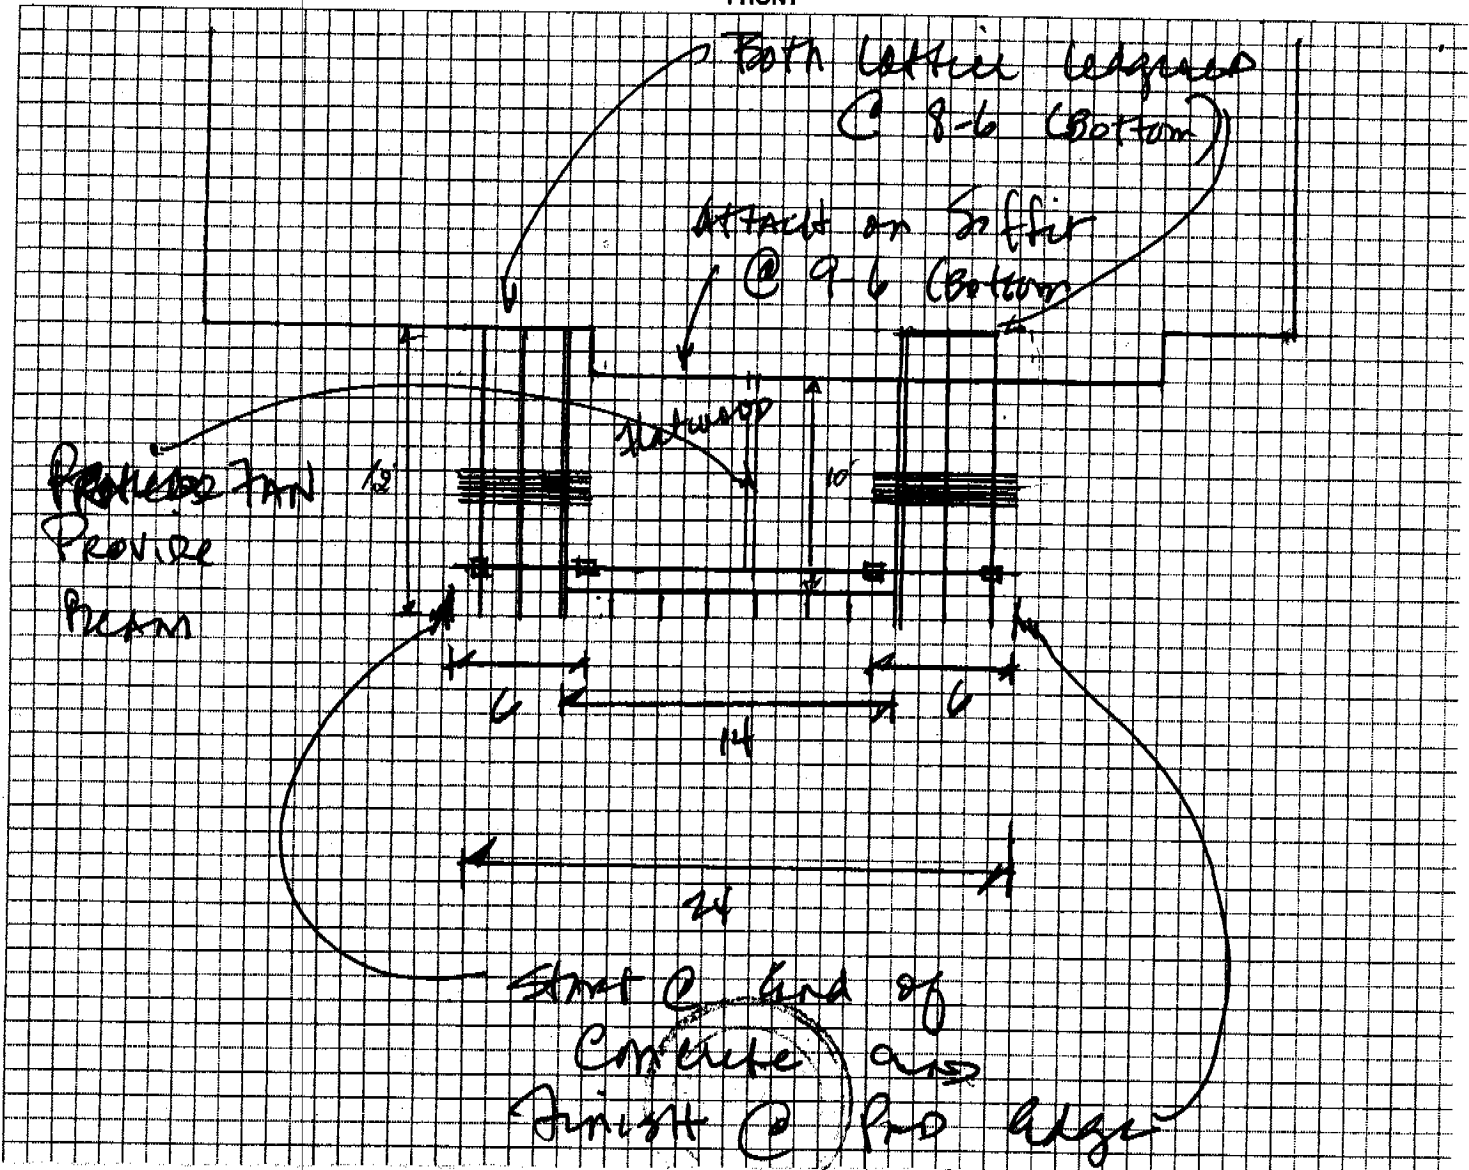 FRONT
Both Lattice Ledgers
@ 8-6 (Bottom)
Attach on Soffit
@ 9-6 (Bottom
Flatwood
FAN
Provide
Beam
12'
10'
6
14
6
24
Start @ End of
Concrete and
Finish @ End Edge